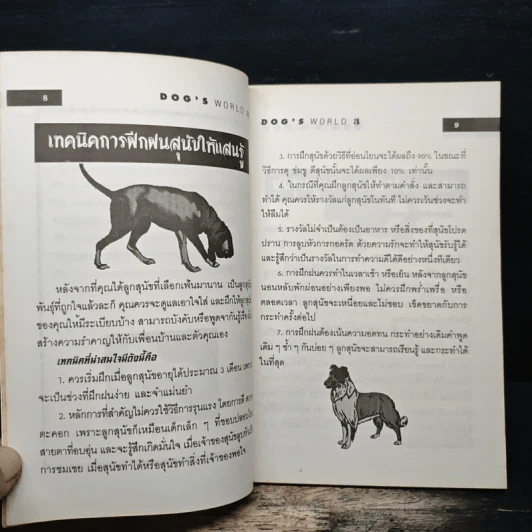 8
DOG'S WORLD
เทคนิคการฝึกฝนสุนัขให้แสนรู้
หลังจากที่คุณได้ลูกสุนัขที่เลือกเฟ้นมานาน เป็นลูกสุนัข
พันธุ์ที่ถูกใจแล้วละก็ คุณควรจะดูแลเอาใจใส่ และฝึกให้ลูกสุนัข
ของคุณให้มีระเบียบบ้าง สามารถบังคับหรือพูดจากันรู้เรื่อง
สร้างความรำคาญให้กับเพื่อนบ้านและตัวคุณเอง
เทคนิคที่น่าสนใจมีดังนี้คือ
1. ควรเริ่มฝึกเมื่อลูกสุนัขอายุได้ประมาณ 3 เดือน เพราะ
จะเป็นช่วงที่ฝึกฝนง่าย และจำแม่นยำ
2. หลักการที่สำคัญไม่ควรใช้วิธีการรุนแรง โดยการตี
ตะคอก เพราะลูกสุนัขก็เหมือนเด็กเล็ก ๆ ที่ชอบปลอบโยน
สายตาที่อบอุ่น และจะรู้สึกเกิดมั่นใจ เมื่อเจ้าของสุนัขลูบ
การชมเชย เมื่อสุนัขทำได้หรือสุนัขทำสิ่งที่เจ้าของพอใจ
DOG'S WORLD 3
9
3. การฝึกสุนัขด้วยวิธีที่อ่อนโยนจะได้ผลถึง 90% ในขณะที่
วิธีการดุ ข่มขู่ ตีสุนัขนั้นจะได้ผลเพียง 10% เท่านั้น
4. ในกรณีที่คุณฝึกลูกสุนัขให้ทำตามคำสั่ง และสามารถ
ทำได้ คุณควรให้รางวัลแก่ลูกสุนัขในทันที ไม่ควรเว้นช่วงจะทำ
ให้ลืมได้
5. รางวัลไม่จำเป็นต้องเป็นอาหาร หรือสิ่งของที่สุนัขโปรด
ปราน การลูบหัวการกอดรัด ด้วยความรักจะทำให้สุนัขรับรู้ได้
และรู้สึกว่าเป็นรางวัลในการทำความดีได้ดีอย่างหนึ่งทีเดียว
6. การฝึกฝนควรทำในเวลาเช้า หรือเย็น หลังจากลูกสุนัข
นอนหลับพักผ่อนอย่างเพียงพอ ไม่ควรฝึกพร่ำเพรื่อ หรือ
ตลอดเวลา ลูกสุนัขจะเหนื่อยและไม่ชอบ เข็ดขยาดกับการ
กระทำครั้งต่อไป
7. การฝึกฝนต้องเน้นความอดทน กระทำอย่างเดิมคำพูด
เดิม ๆ ซ้ำ ๆ กันบ่อย ๆ ลูกสุนัขจะสามารถเรียนรู้ และกระทำได้
ในที่สุด